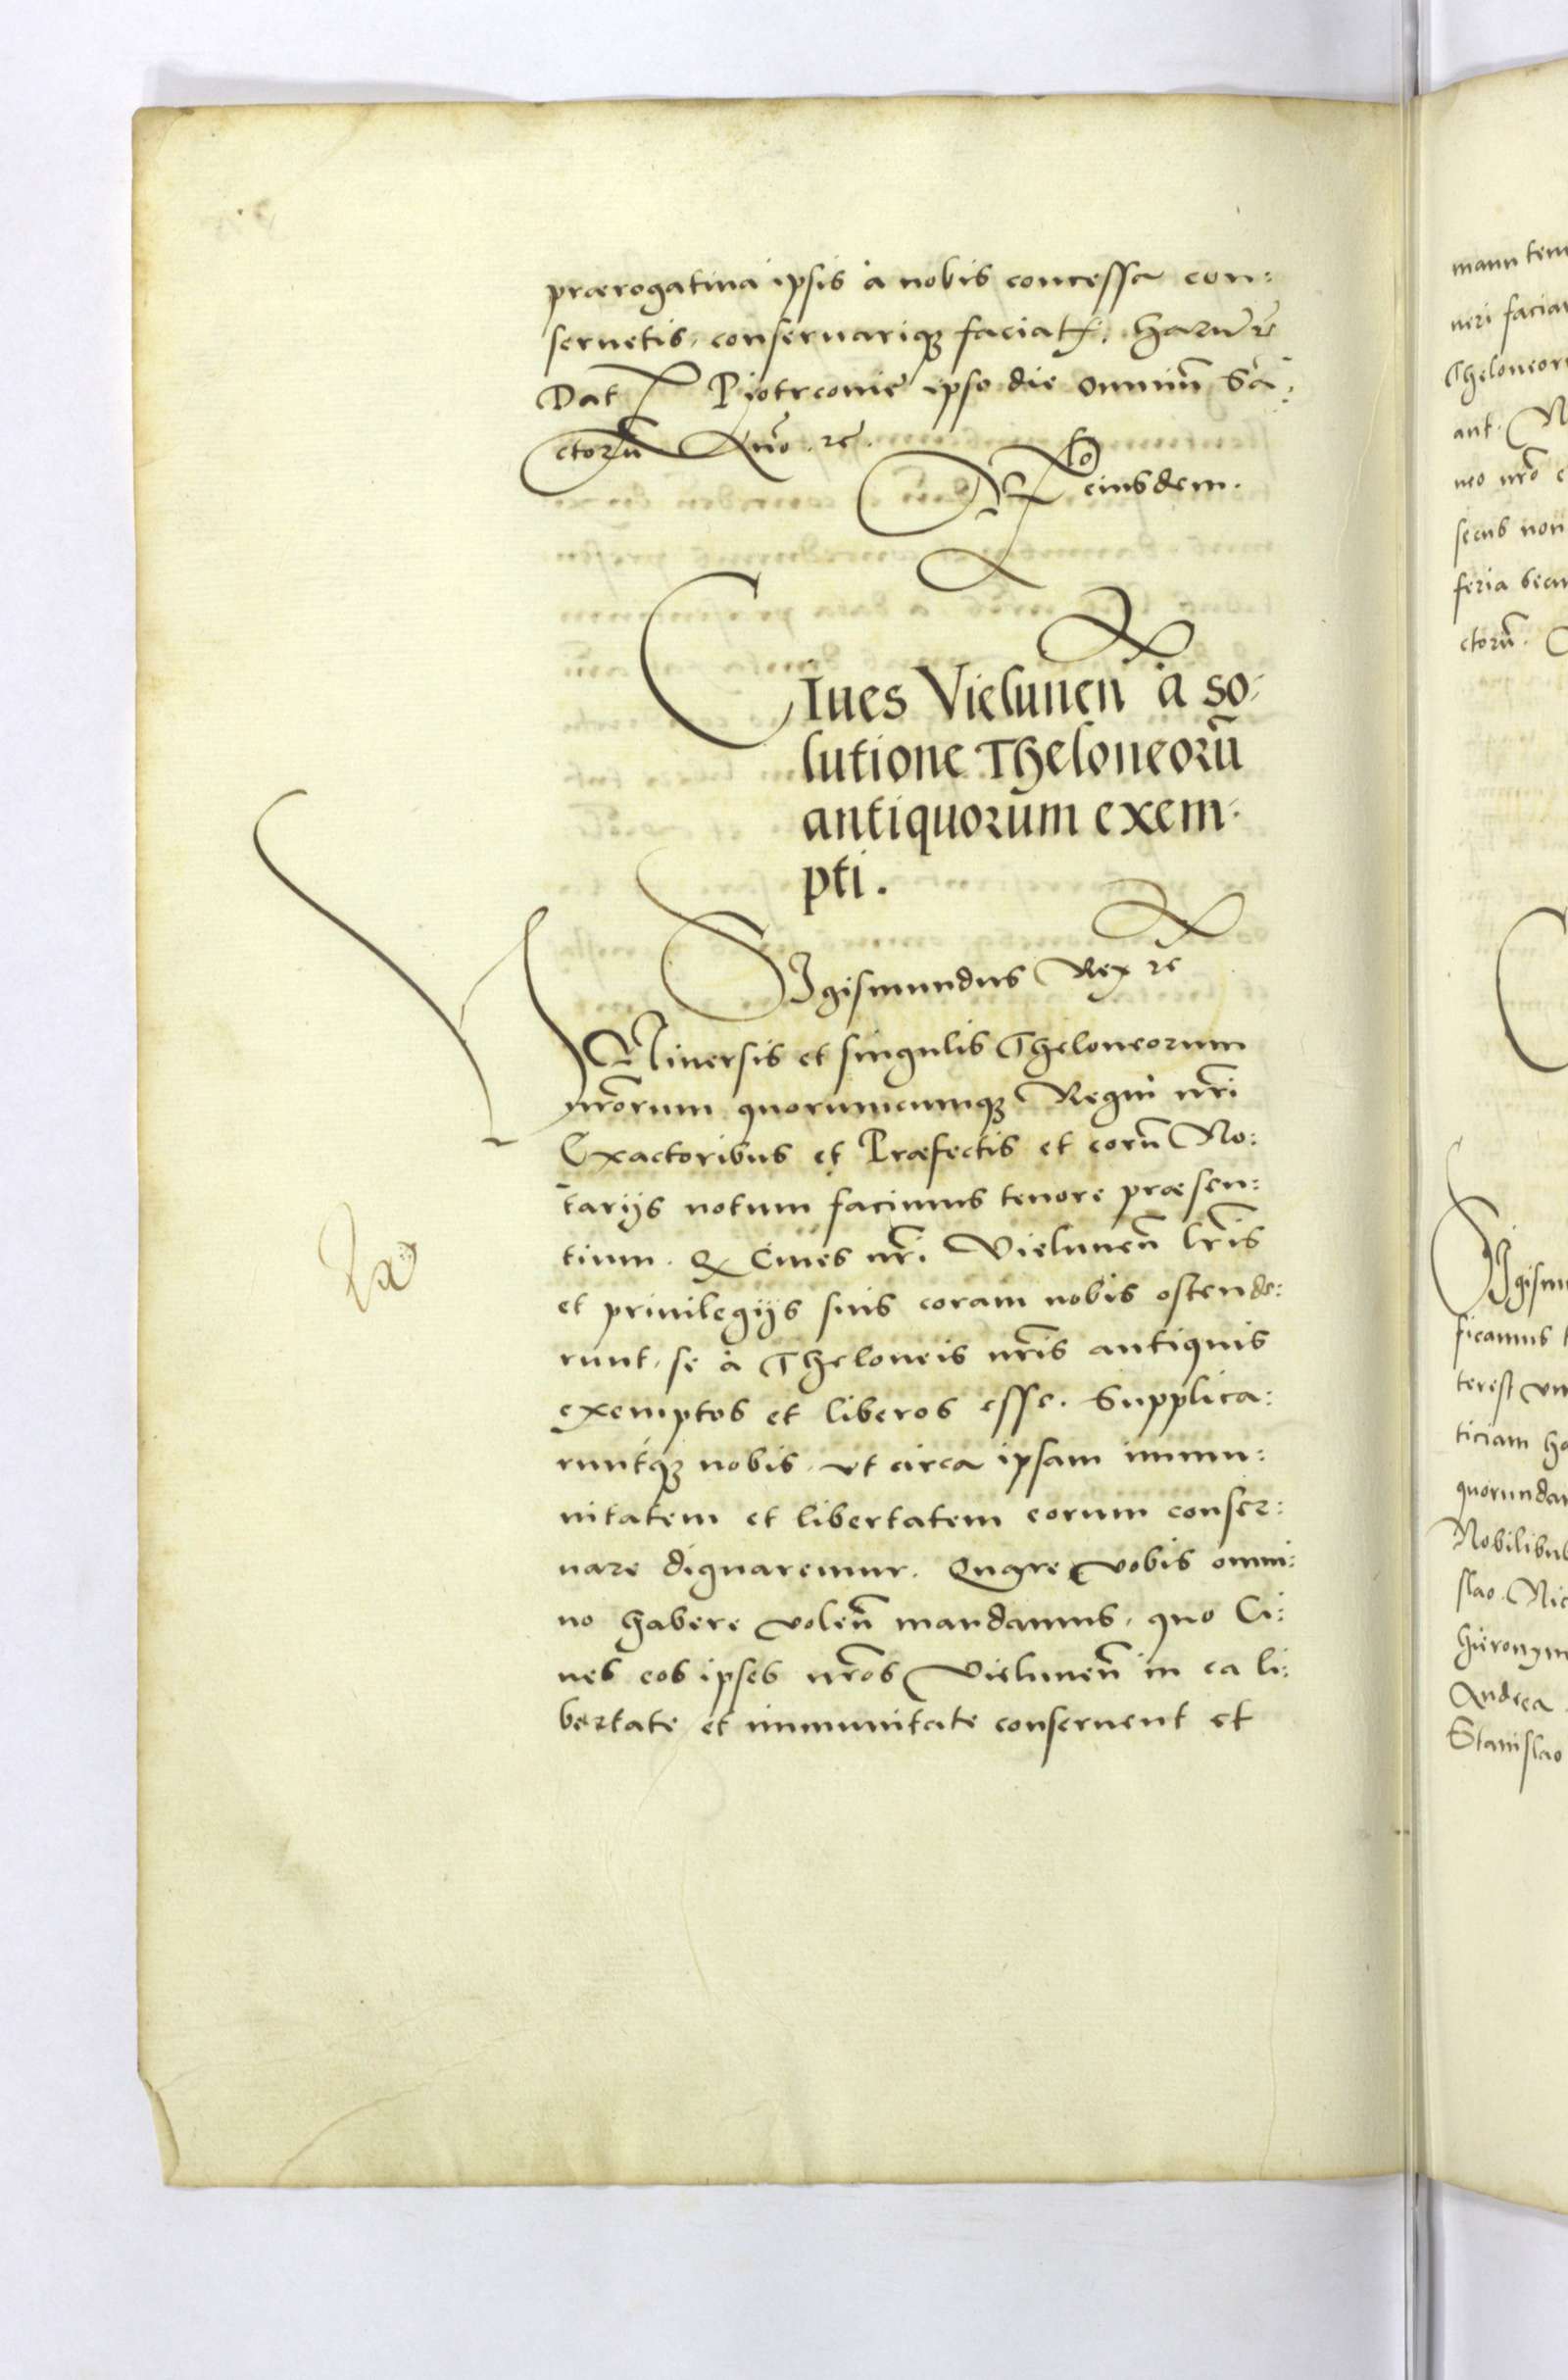 prærogatiua ipsis à nobis concessa con:
seruetis, conseruariq; faciatis. Harum etc
Dat Piotrconie ipso die Omniu̅ Sa̅:
ctoru̅ Anno. etc.
Rlo eiusdem.
CIues Vielunen̅ à so:
lutione Theloneoru̅
antiquorum exem:
pti.
SIgismundus Rex etc
VNiuersis et singulis Theloneorum
nr̅orum quorumcumq; Regni nr̅i
Exactoribus et Præfectis et eoru̅ No:
tarijs notum facimus tenore præsen:
tium. Q Ciues nr̅i Vielunen̅ lr̅is
et priuilegijs suis coram nobis ostende:
runt, se à Theloneis nr̅is antiquis
exemptos et liberos esse. Supplica:
runtq; nobis, vt circa ipsam immu:
nitatem et libertatem eorum conser:
uare dignaremur. Quare vobis omni:
no habere volen̅ mandamus, quo Ci:
ues eos ipsos nr̅os Vielunen̅ in ea li:
bertate et immunitate conseruent et
mann tem
neri facia
Theloneor
ant. N
neo nr̅o e
secus non
feria secu
ctoru̅.
SIgism
ficamus
terest vn
ticiam ha
quorundam
Nobilibus
slao. Nic
Hieronym
Andrea
Stanislao